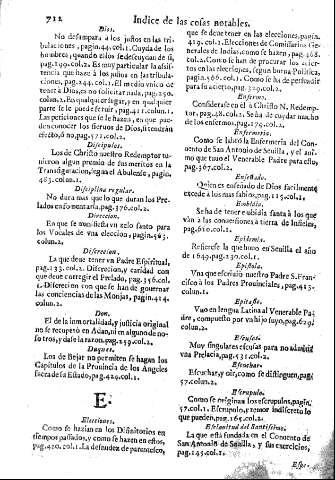 712
Indice de las cosas notables.
Dios.
No desampara a los justos en las tri-
bulaciones, pagin.44.col.1. Cuyda de los
hombres, quando ellos se descuydan de si,
pag.199.col.2. Es muy particular la assis-
tencia que haze à los justos en las tribula-
ciones, pag.244.col.2. El medio vnico de
tener à Dios, es no solicitar nada, pag.250.
colun.2. En qualquier lugar, y en qualquier
parte se le puede servir, pag.411.colun.1.
Las peticiones que se le hazen, en que pue-
dan conocer los siervos de Dios, si tendràn
efecto, ò no, pag.572.col.2.
Discipulos.
Los de Christo nuestro Redemptor tu-
vieron algun premio de sus meritos en la
Transfiguracion, segun el Abulense, pagin.
483.colun.1.
Disciplina regular.
No dura mas lo que duran los Pre-
lados en fomentarla, pag.176.col.2.
Direccion.
En que se manifiesta vn zelo santo para
los Vocales de vna eleccion, pagin.563.
colun.2.
Discrecion.
La que deve tener vn Padre Espiritual,
pag.133.col.2. Discrecion, y caridad con
que deve corregir el Perlado, pag.356.col.
1. Discrecion con que se han de governar
las conciencias de las Monjas, pagin.414.
colun.2.
Don.
El de la inmortalidad, y justicia original
no se recuperò en Adan, ni en alguno de no-
sotros, y dase la razon, pag.259.col.2.
Duques.
Los de Bejar no permiten se hagan los
Capitulos de la Provincia de los Angeles
fuera de su Estado, pag.424.col.1.
E.
Elecciones.
Como se hazian en los Difinitorios en
tiempos passados, y como se hazen en estos,
pag.420.col.1. La de sudeza de parentesco,
que se deve tener en las elecciones, pagin.
419.col.2. Elecciones de Comissarios Ge-
nerales de Indias, como se hazen, pag.468.
col.2. Como se han de procurar los acier-
tos en las elecciones, segun buena Politica,
pagin.566.col.1. Como se han de persuadir
para su acierto, pag.329.col.2.
Enfermo.
Considerase en el à Christo N. Redemp-
tor, pag.48.col.2. Se hà de cuydar mucho
de los enfermos, pag.179.col.2.
Enfermeria.
Como se labrò la Enfermeria del Con-
vento de San Antonio de Sevilla, y el ani-
mo que tuvo el Venerable Padre para esto,
pag.367.col.2.
Enseñado.
Quien es enseñado de Dios facilmente
excede a los mas sabios, pag.115.col.1.
Embidia.
Se hà de tener embidia santa à los que
vàn a las conversiones à tierra de Infieles,
pag.610.col.1.
Epidemia.
Refierese la que huvo en Sevilla el año
de 1649. pag.139.col.1.
Epistola.
Vna que escriviò nuestro Padre S. Fran-
cisco à los Padres Provinciales, pag.413.
colun.1.
Epitafio.
Vno en lengua Latina al Venerable Pa-
dre, compuesto por vn hijo suyo, pag.629.
colun.2.
Escusas.
Muy singulares escusas para no admitir
vna Prelacia, pag.531.col.2.
Escuchar.
Escuchar, y oìr, como se distinguen, pag.
57.colun.2.
Escrupulo.
Como se originan los escrupulos, pagin.
57.col.1. Escrupulo, y temor indiscreto lo
que pueden, pag.165.col.2.
Esclavitud del Santissimo.
La que està fundada en el Convento de
San Antonio de Sevilla, y sus exercicios,
pag.145.col.1.
Espe-